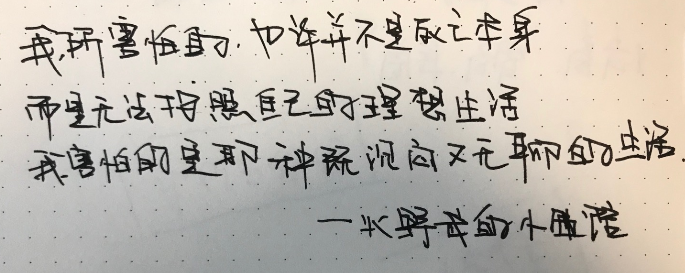 我所害怕的,也许并不是死亡本身
而是无法按照自己的理想生活
我害怕的是那种既沉闷又无聊的生活.
——水野武的小酒馆